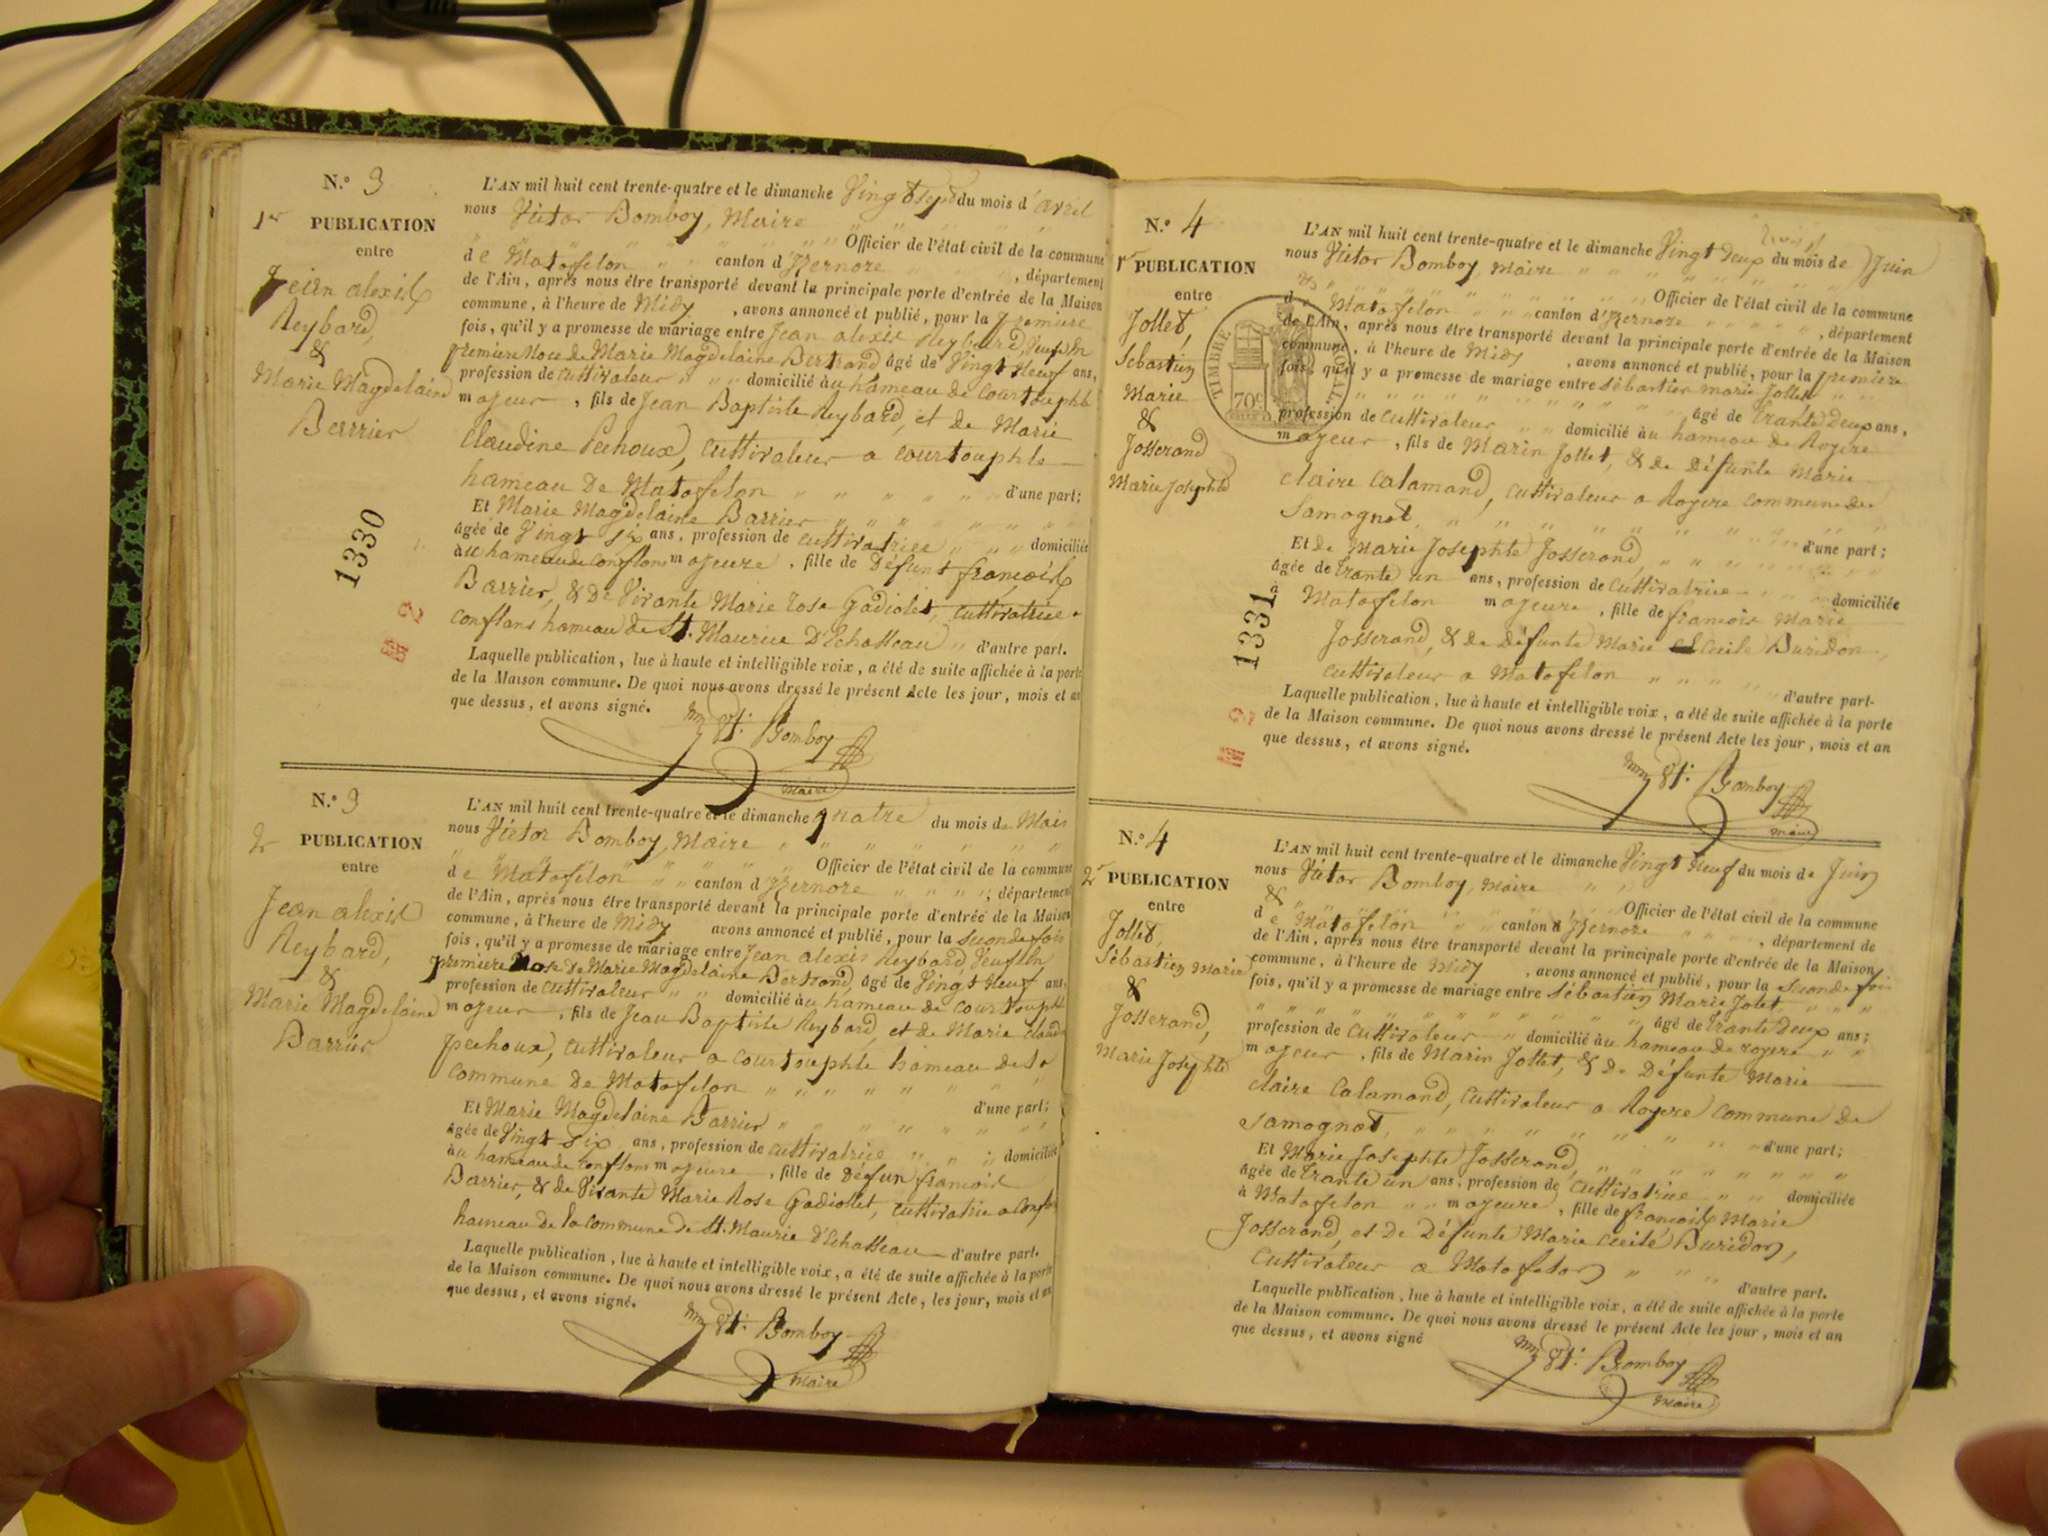 N.° 3
1er PUBLICATION
entre
Jean alexis
Reybard,
&
Marie Magdelaine
Barrier
1330
L'AN mil huit cent trente-quatre et le dimanche Vingt sept du mois d'avril
nous Victor Bomboy, Maire " "
Officier de l'état civil de la commune
de Matafelon " " canton d'Izernore , département
de l'Ain, après nous être transporté devant la principale porte d'entrée de la Maison
commune, à l'heure de Midy , avons annoncé et publié, pour la premiere
fois, qu'il y a promesse de mariage entre Jean alexis Reybard, Veuf En
premiere Noce de Marie Magdelaine Bertrand âgé de Vingt Neuf ans,
profession de Cuttivateur " " domicilié àu hameau de Courtouphle
majeur , fils de Jean Baptiste Reybard, et de Marie
Claudine Pechoux, Cuttivateur a Courtouphle
hameau De Matafelon " " " " " " d'une part;
Et Marie Magdelaine Barrier " " " " " "
âgée de Vingt Six ans, profession de Cuttivatrice " " " domiciliée
àu hameau de Conflans majeure , fille de Défunt françois
Barrier, & De Vivante Marie Rose Gadiolet, Cuttivatrice a
Conflans hameau de St. Maurice D'Echasseau " d'autre part.
Laquelle publication, lue à haute et intelligible voix, a été de suite affichée à la porte
de la Maison commune. De quoi nous avons dressé le présent Acte les jour, mois et an
que dessus, et avons signé.
Bomboy
Maire
N.° 3
2e PUBLICATION
entre
Jean alexis
Reybard,
&
Marie Magdelaine
Barrier
L'AN mil huit cent trente-quatre et le dimanche quatre du mois de Mai
nous Victor Bomboy, Maire " " " " " " " "
Officier de l'état civil de la commune
de Matafelon " " canton d'Izernore " " " " ; département
de l'Ain, après nous être transporté devant la principale porte d'entrée de la Maison
commune, à l'heure de Midy avons annoncé et publié, pour la seconde fois
fois, qu'il y a promesse de mariage entre Jean alexis Reybard, Veuf En
premiere Nose de Marie Magdelaine Bertrand, âgé de Vingt Neuf ans,
profession de Cuttivateur " " domicilié àu hameau de Courtouphle
majeur , fils de Jean Baptiste Reybard, et de Marie Claudine
Pechoux, Cuttivateur a Courtouphle hameau de la
commune de Matafelon " " " " " " " "
d'une part;
Et Marie Magdelaine Barrier " " " " " " " "
âgée de Vingt Six ans, profession de Cuttivatrice " " " domiciliée
àu hameau de Conflans majeure , fille de Défunt françois
Barrier, & de Vivante Marie Rose Gadiollet, Cuttivatrice a Conflans
hameau de la Commune de St. Maurice d'Echasseau d'autre part.
Laquelle publication, lue à haute et intelligible voix, a été de suite affichée à la porte
de la Maison commune. De quoi nous avons dressé le présent Acte, les jour, mois et an
que dessus, et avons signé.
Bomboy
Maire
N.° 4
1e PUBLICATION
entre
Jollet,
Sébastien
Marie
&
Josserand
Marie Josephte
1331
TIMBRE ROYAL
70c
L'AN mil huit cent trente-quatre et le dimanche Vingt deux du mois de Juin
nous Victor Bomboy Maire " " " " " " " "
Officier de l'état civil de la commune
de Matafelon " " " canton d'Izernore " " " " , département
de l'Ain, après nous être transporté devant la principale porte d'entrée de la Maison
commune, à l'heure de Midy , avons annoncé et publié, pour la premiere
fois, qu'il y a promesse de mariage entre Sébastien Marie Jollet " "
" " " " " " " " " " âgé de Trante Deux ans,
profession de Cuttivateur " " domicilié àu hameau de Royere
majeur , fils de Marin Jollet, & de Défunte Marie
Claire Calamand, Cuttivateur a Royere Commune de
Samognat, " " " " " " " "
d'une part;
Et de Marie Josephte Josserand, " " " " " "
âgée de Trante un ans, profession de Cuttivatrice " " " domiciliée
à Matafelon majeure , fille de françois Marie
Josserand, & de Défunte Marie Cecile Buridon,
Cuttivateur a Matafelon " " " " "
d'autre part.
Laquelle publication, lue à haute et intelligible voix, a été de suite affichée à la porte
de la Maison commune. De quoi nous avons dressé le présent Acte les jour, mois et an
que dessus, et avons signé.
Bomboy
Maire
N.° 4
2e PUBLICATION
entre
Jollet,
Sébastien Marie
&
Josserand,
Marie Josephte
L'AN mil huit cent trente-quatre et le dimanche Vingt Neuf du mois de Juin
nous Victor Bomboy, Maire " "
Officier de l'état civil de la commune
de Matafelon " " canton d'Izernore " " " , département de
de l'Ain, après nous être transporté devant la principale porte d'entrée de la Maison
commune, à l'heure de Midy , avons annoncé et publié, pour la Seconde fois
fois, qu'il y a promesse de mariage entre Sébastien Marie Jolet, " " "
" " " " " " " " " " , âgé de Trante Deux ans;
profession de Cuttivateur " domicilié àu hameau de royere " "
majeur , fils de Marin Jollet, & de Défunte Marie
Claire Calamand, Cuttivateur a Royere Commune de
Samognat, " " " " " " " " d'une part;
Et Marie Josephte Josserand, " " " " " " "
âgée de Trante un ans, profession de Cuttivatrice " " " domiciliée
à Matafelon " " majeure , fille de françois Marie
Josserand, et de Défunte Marie Cecile Buridon,
Cuttivateur a Matafelon " " " "
d'autre part.
Laquelle publication, lue à haute et intelligible voix, a été de suite affichée à la porte
de la Maison commune. De quoi nous avons dressé le présent Acte les jour, mois et an
que dessus, et avons signé
Bomboy
Maire